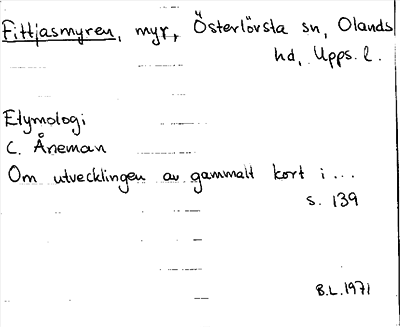 Fittjasmyren, myr, Österlövsta sn, Olands
hd, Upps. l.
Etymologi
C. Åneman
Om utvecklingen av gammalt kort i ...
s. 139
B.L. 1971